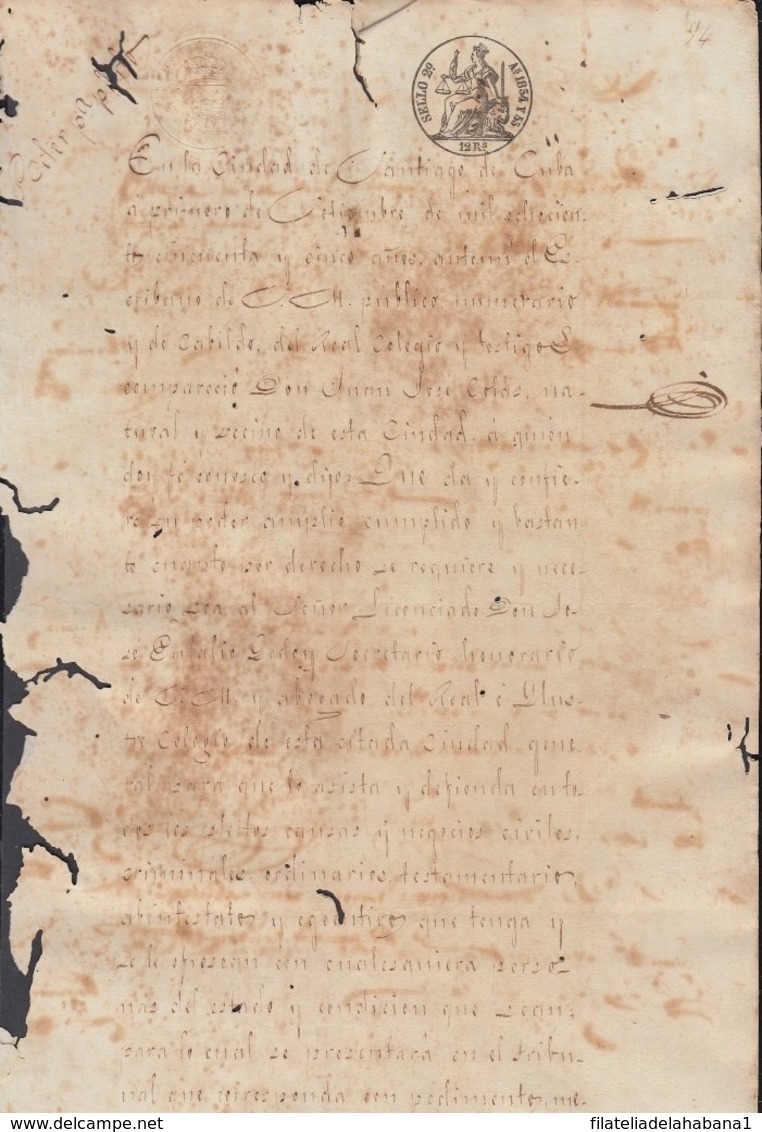 94
Poder pa
SELLO 2º Aº 1854 Y 55
12 Rs
En la Ciudad de Santiago de Cuba
a primero de Setiembre de mil ochocien-
to cincuenta y cinco años, antemi el Es-
cribano de S. M. publico numerario
y de Cabildo, del Real Colegio y testigos
comparecio Don Juan Jose na-
tural y vecino de esta Ciudad, á quien
doy fé conosco y dijo: Que da y confie-
re su poder amplio cumplido y bastan
te cuanto por derecho se requiere y nece-
sario sea al Señor Licenciado Don Jo-
se Eulalio Godoy Secretario honorario
de S. M. y abogado del Real é Ylus-
tre Colegio de esta citada Ciudad, gene
ral para que lo asista y defienda en to-
dos los pleitos causas y negocios civiles,
criminales, ordinarios, testamentario,
abintestatos y egecutivos que tenga y
se le ofrescan con cualesquiera perso-
nas del estado y condicion que sean;
para lo cual se presentará en el tribu-
nal que corresponda con pedimentos, me-
filateliadelahabana1